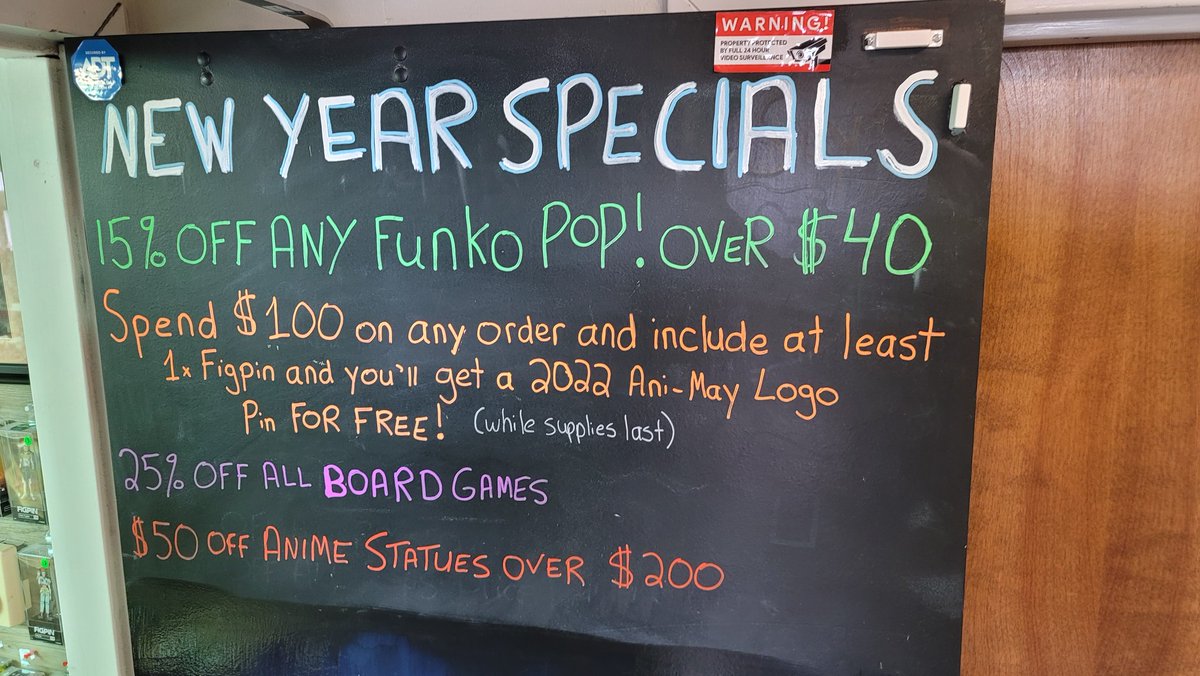 SECURED BY
ADT
WARNING!
PROPERTY PROTECTED
BY FULL 24 HOUR
VIDEO SURVEILLANCE
NEW YEAR SPECIALS
15% OFF ANY Funko POP! OVER $40
Spend $100 on any order and include at least
1x Figpin and you'll get a 2022 Ani-May Logo
Pin FOR FREE! (while supplies last)
25% OFF ALL BOARD GAMES
$50 OFF ANIME STATUES OVER $200
FIGPIN
FIGPIN